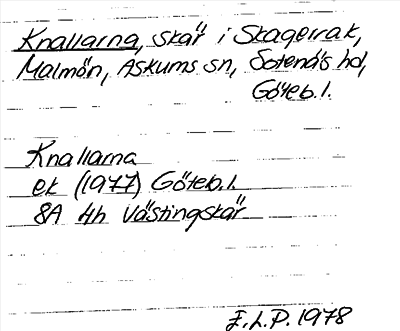 Knallarna, skär i Skagerrak,
Malmön, Askums sn, Sotenäs hd,
Göteb.l.
Knallarna
ek (1977) Göteb.l.
8A 4h Västingskär
E.L.P. 1978